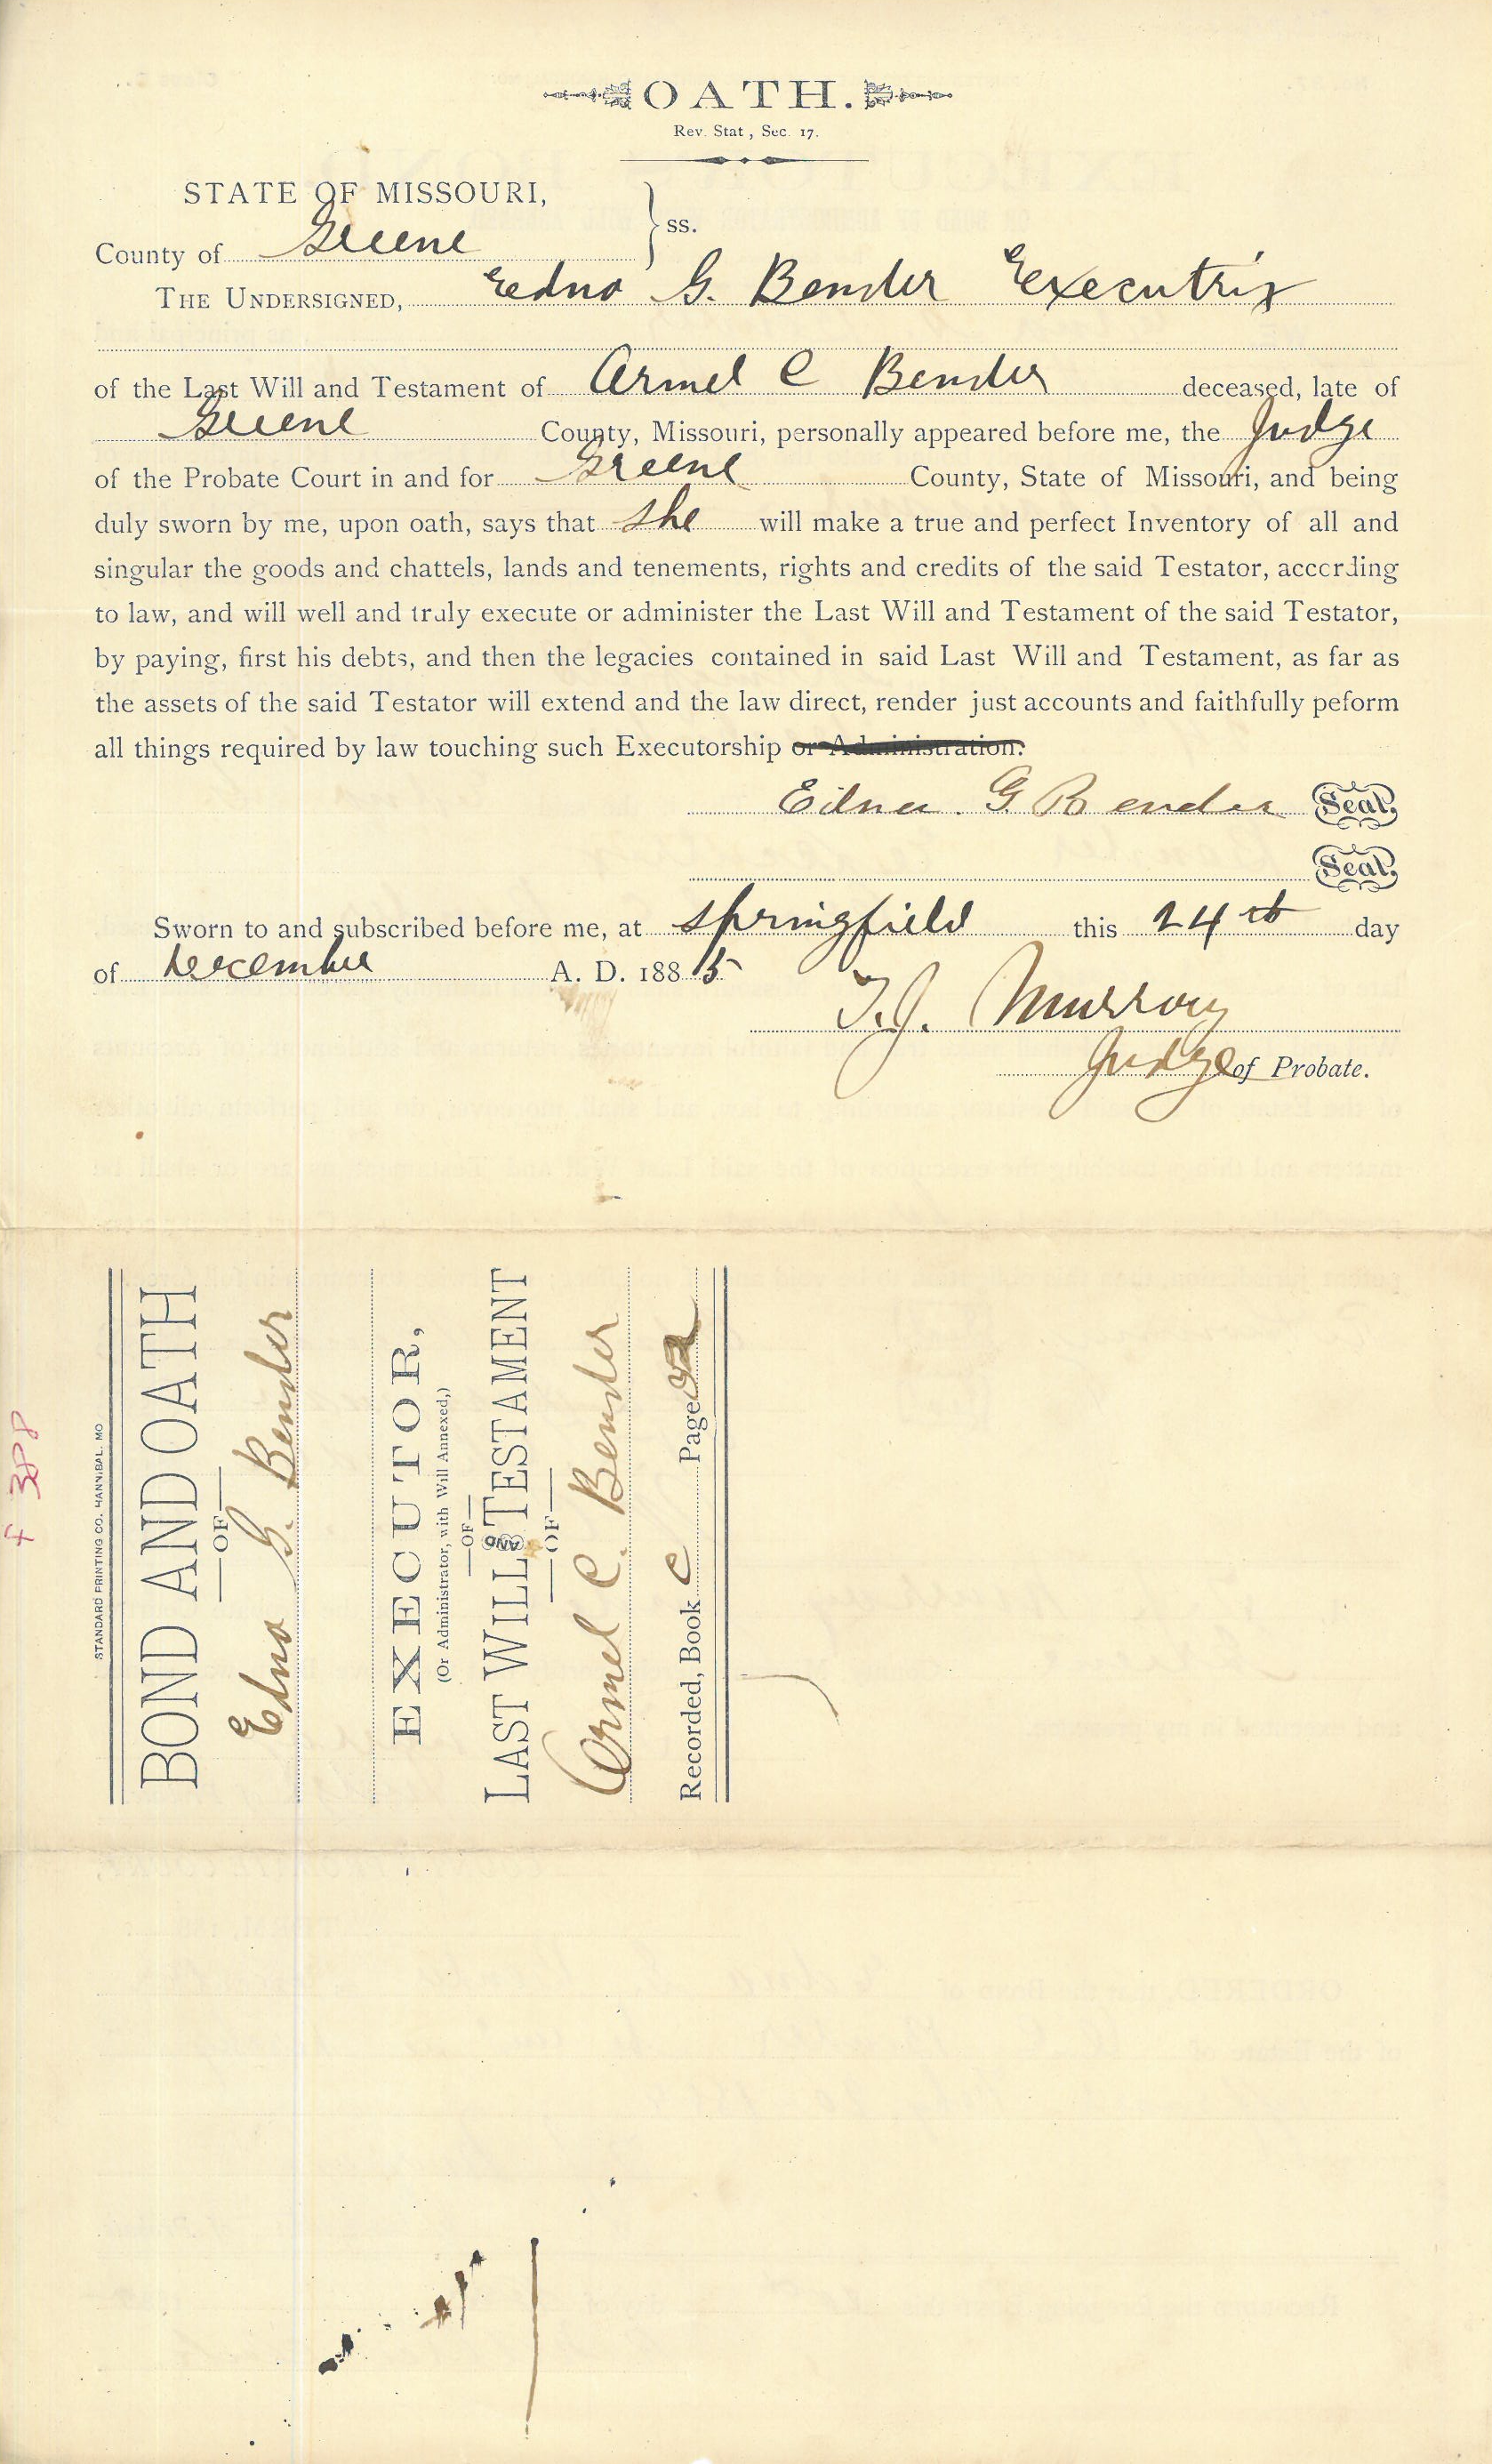 OATH.
Rev. Stat, Sec. 17.
STATE OF MISSOURI,
County of Greene } ss.
THE UNDERSIGNED, Edna G. Bender Executrix
of the Last Will and Testament of Armel C Bender deceased, late of
Greene County, Missouri, personally appeared before me, the Judge
of the Probate Court in and for Greene County, State of Missouri, and being
duly sworn by me, upon oath, says that she will make a true and perfect Inventory of all and
singular the goods and chattels, lands and tenements, rights and credits of the said Testator, according
to law, and will well and truly execute or administer the Last Will and Testament of the said Testator,
by paying, first his debts, and then the legacies contained in said Last Will and Testament, as far as
the assets of the said Testator will extend and the law direct, render just accounts and faithfully peform
all things required by law touching such Executorship or Administration.
Edna. G. Bender Seal.
Seal.
Sworn to and subscribed before me, at Springfield this 24th day
of December A. D. 1885
T. J. Murray
Judge of Probate.
STANDARD PRINTING CO. HANNIBAL. MO
BOND AND OATH
OF
Edna G. Bender
EXECUTOR,
(Or Administrator, with Will Annexed,)
OF
LAST WILL AND TESTAMENT
OF
Armel C. Bender
Recorded, Book C Page